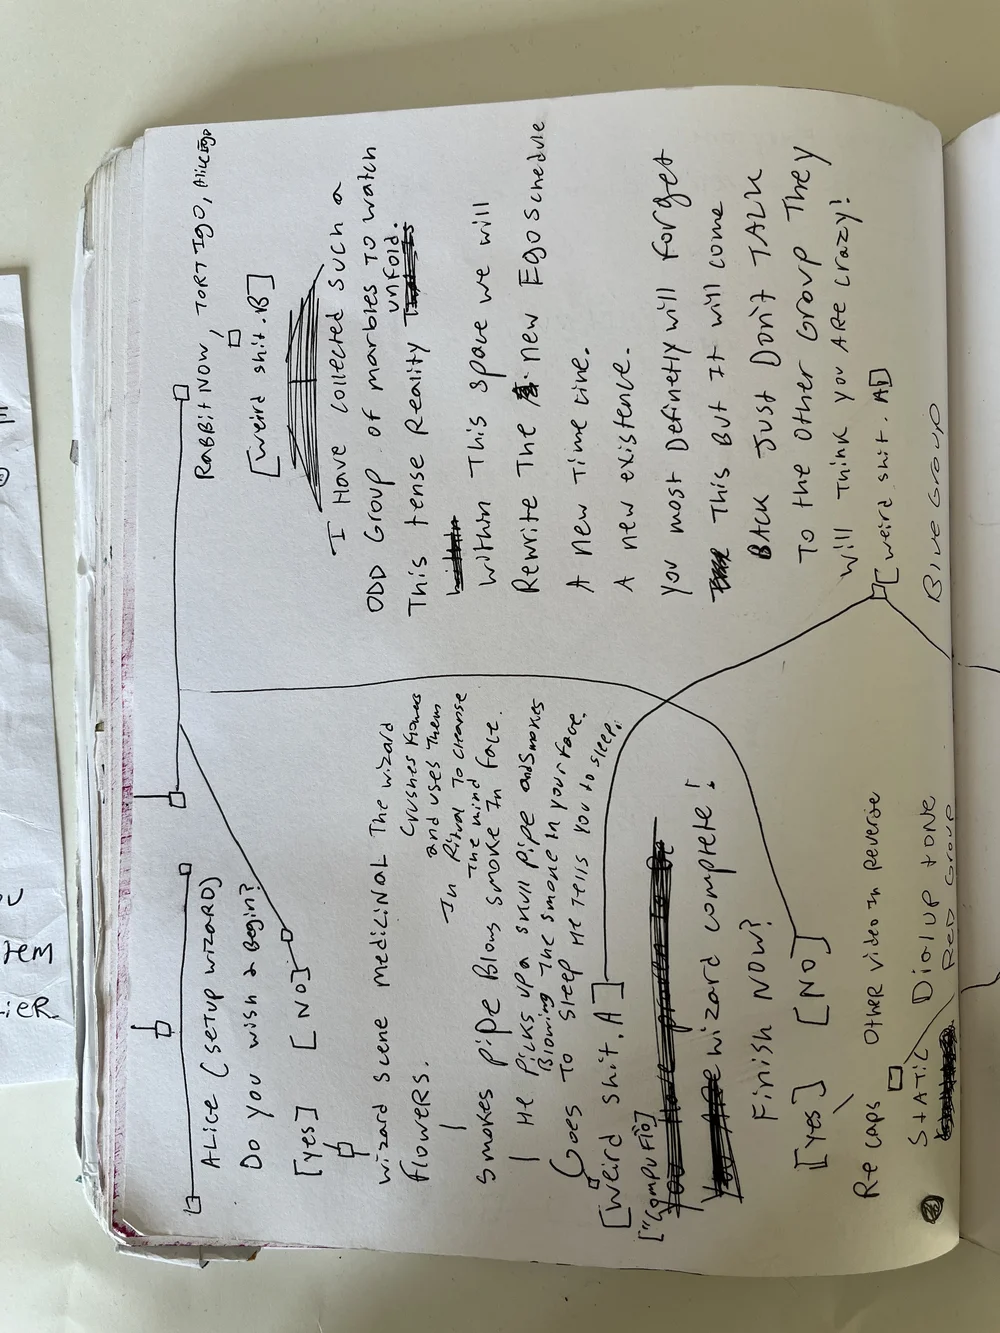 ALICE (SETUP WIZARD)
Do you wish 2 Begin?
[yes] [NO]
wizard scene medicinal The wizard
flowers.
crushes flowers
and uses Them
In Ritual To cleanse
The mind
smokes pipe Blows smoke In face.
He picks up a skull pipe and smokes
Blowing The smoke In your face.
Goes To Sleep He Tells you to sleep.
[weird shit. A]
["COMPUFIO]
wizard complete!
Finish Now?
[yes] [NO]
Re caps Other video In Reverse
STATIC Dialup tone
Red Group
RABBIT NOW, TORTIGO,
[weird shit. B]
I Have collected such a
ODD Group of marbles To watch
This tense Reality unfold.
within This space we will
Rewrite The new Ego schedule
A new Time Line.
A new existence.
you most Definetly will forget
This But It will come
BACK Just Don't TALK
To the other Group They
will Think you Are crazy!
[weird shit. A]
Blue Group
TEM
LIER